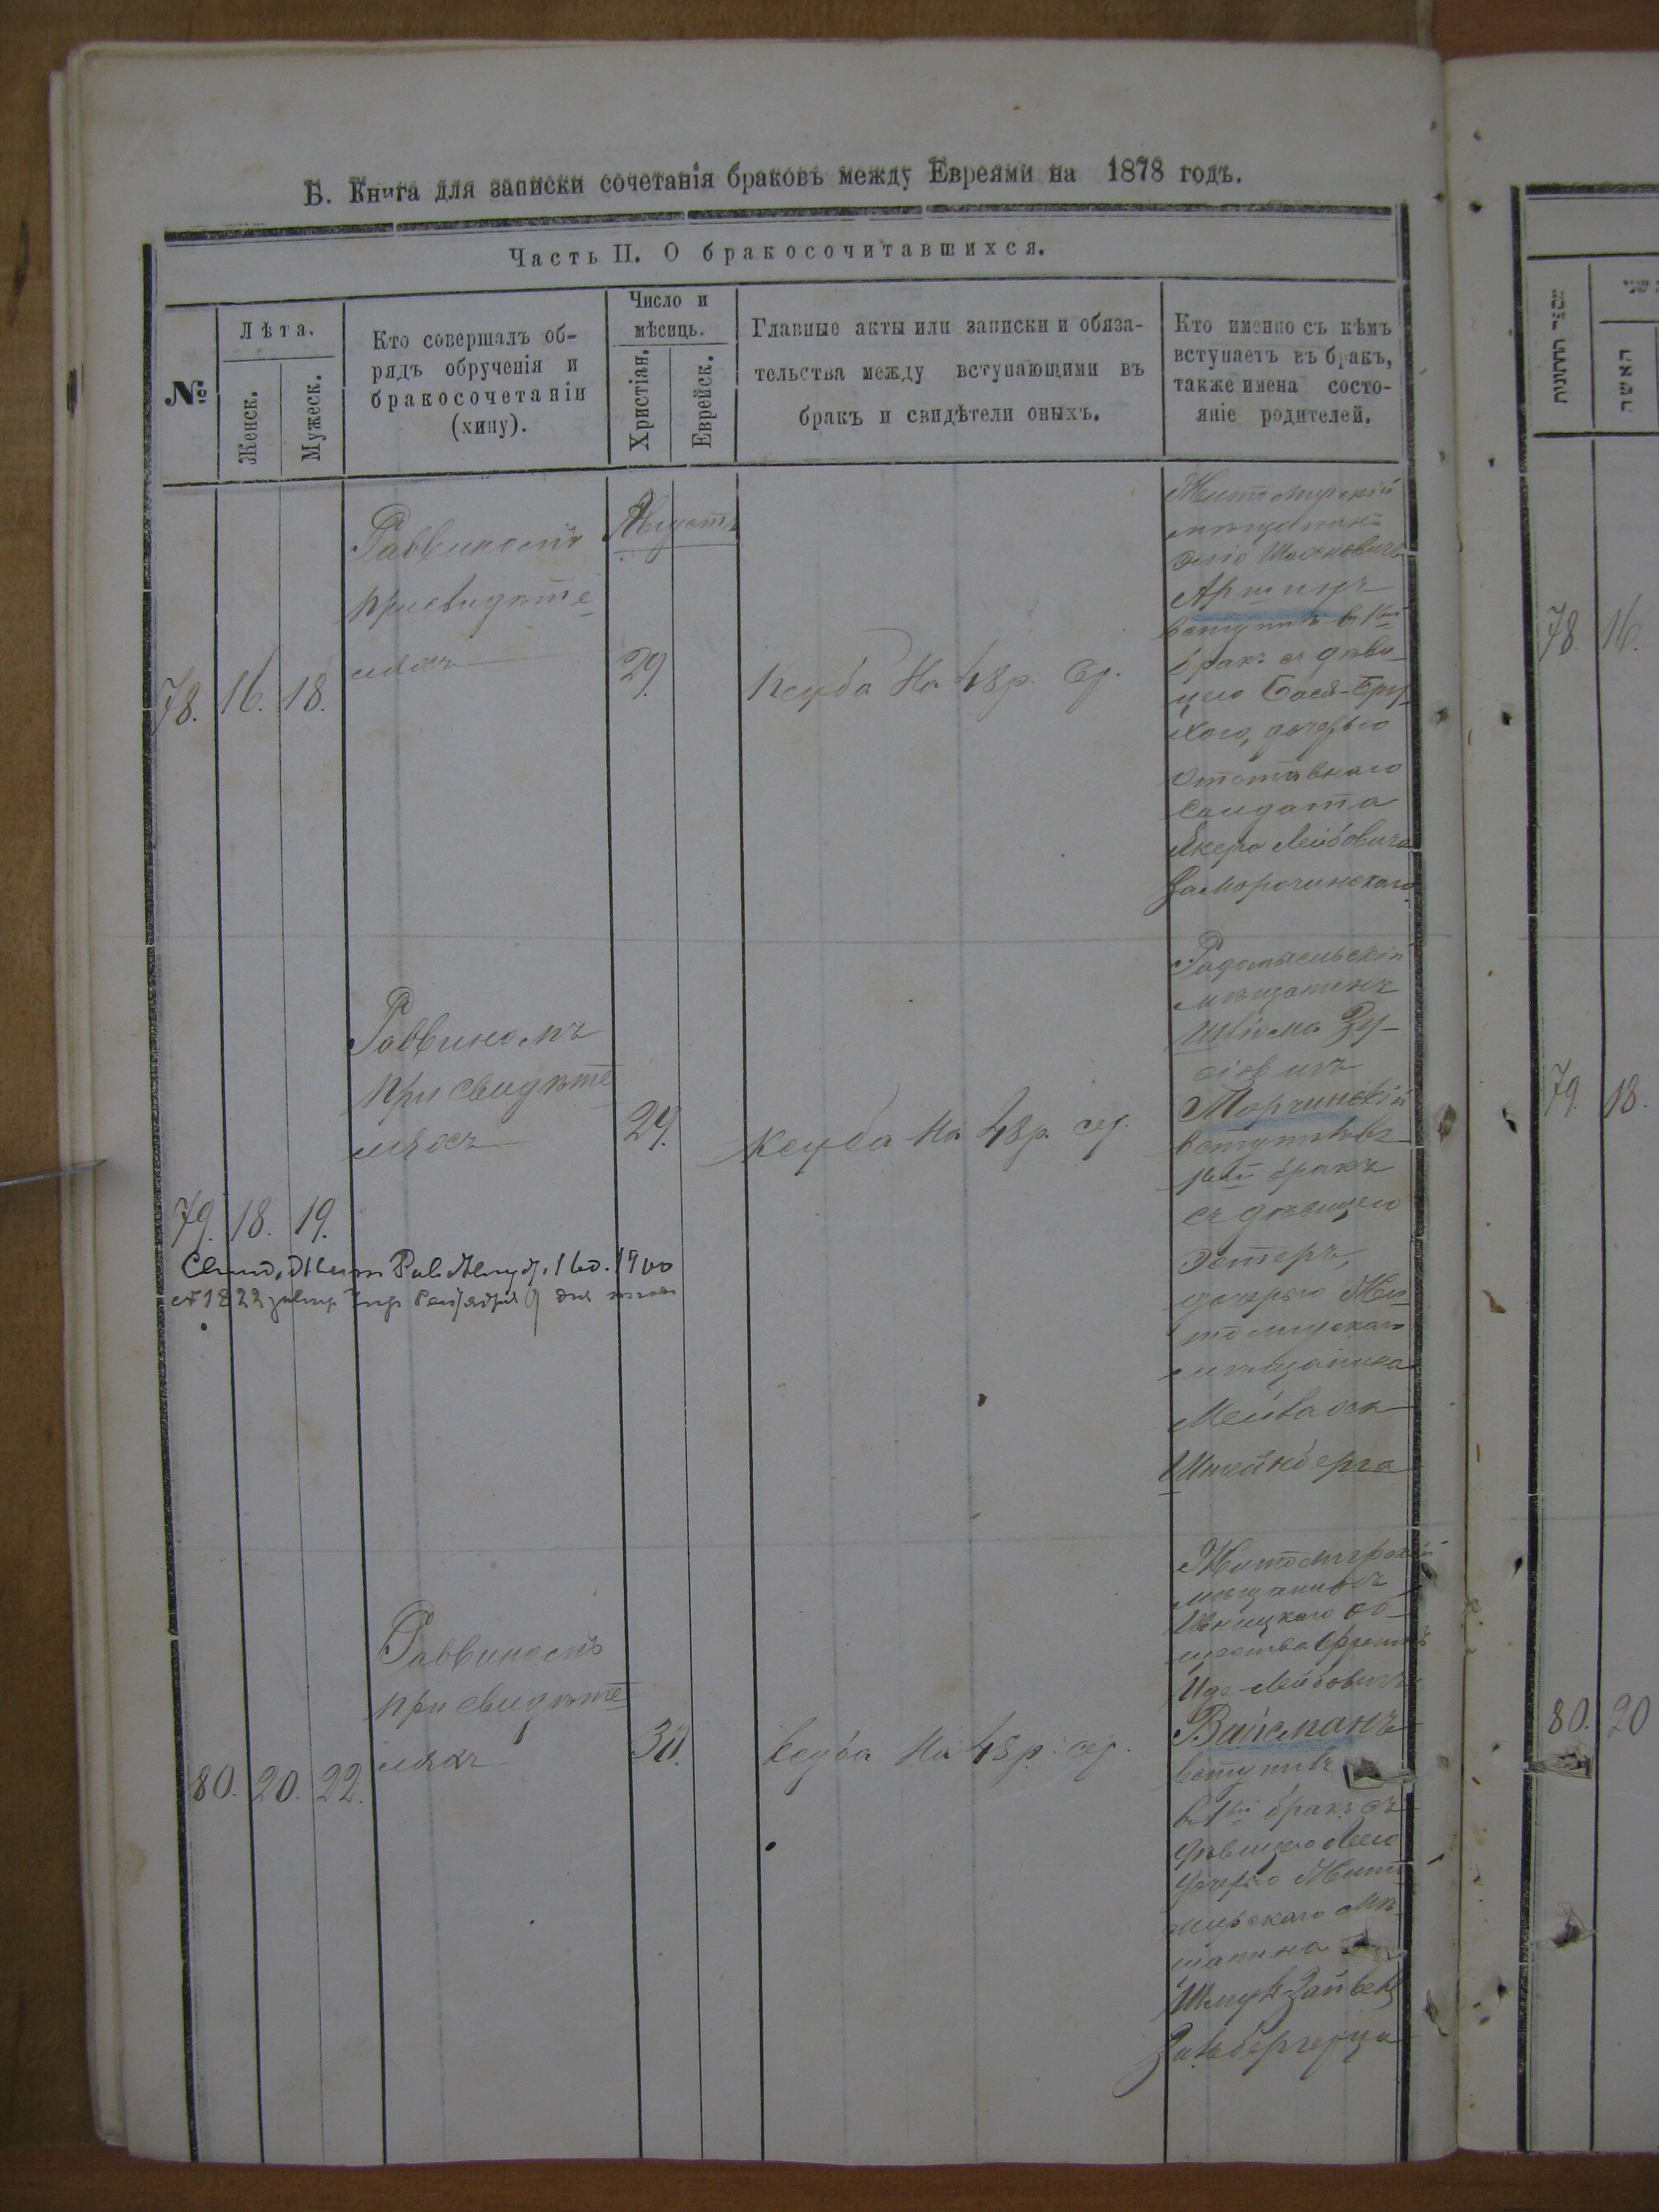 Б. Книга для записки сочетанія браковъ между Евреями на 1878 годъ.
Часть II. О бракосочитавшихся.
№
Лѣта.
Женск.
Мужеск.
Кто совершалъ об-
рядъ обрученія и
бракосочетаніи
(хипу).
Число и
мѣсяцъ.
Христіан.
Еврейск.
Главные акты или записки и обяза-
тельства между вступающими въ
бракъ и свидѣтели оныхъ.
Кто именно съ кѣмъ
вступаетъ въ бракъ,
также имена состо-
яніе родителей.
78.
16.
18.
Раввиномъ
при свидѣте
ляхъ
Августъ
29.
Ксуба на 48 р. сер.
Житомирскій
мѣщанинъ
Шахновичъ
Аршинъ
вступилъ в 1ый
бракъ съ дѣви
цею Бася-Бру
хою, дочерью
отставнаго
солдата
Лейбовича
Заморочинскаго
79.
18.
19.
Раввиномъ
при свидѣте
ляхъ
29.
Ксуба на 48 р. сер.
Радомысльскій
мѣщанинъ
Шлiома Зу-
сіовичъ
Торчинскій
вступилъ въ
1ый бракъ
съ дѣвицею
Эстеръ,
дочерью Жи
томирскаго
мѣщанина
Штейнберга
1900
№ 1822
80.
20.
22.
Раввиномъ
при свидѣте
ляхъ
30.
Ксуба на 48 р. сер.
Житомирскій
мѣщанинъ
Ивницкаго об-
щества Фроимъ
Иде-Лейбовичъ
Вайсманъ
вступилъ
в 1ый бракъ съ
дѣвицею Леею
дочерью Жито
мирскаго мѣ
щанина
Зильбергерца
78.
16.
79.
18.
80.
20
האשה